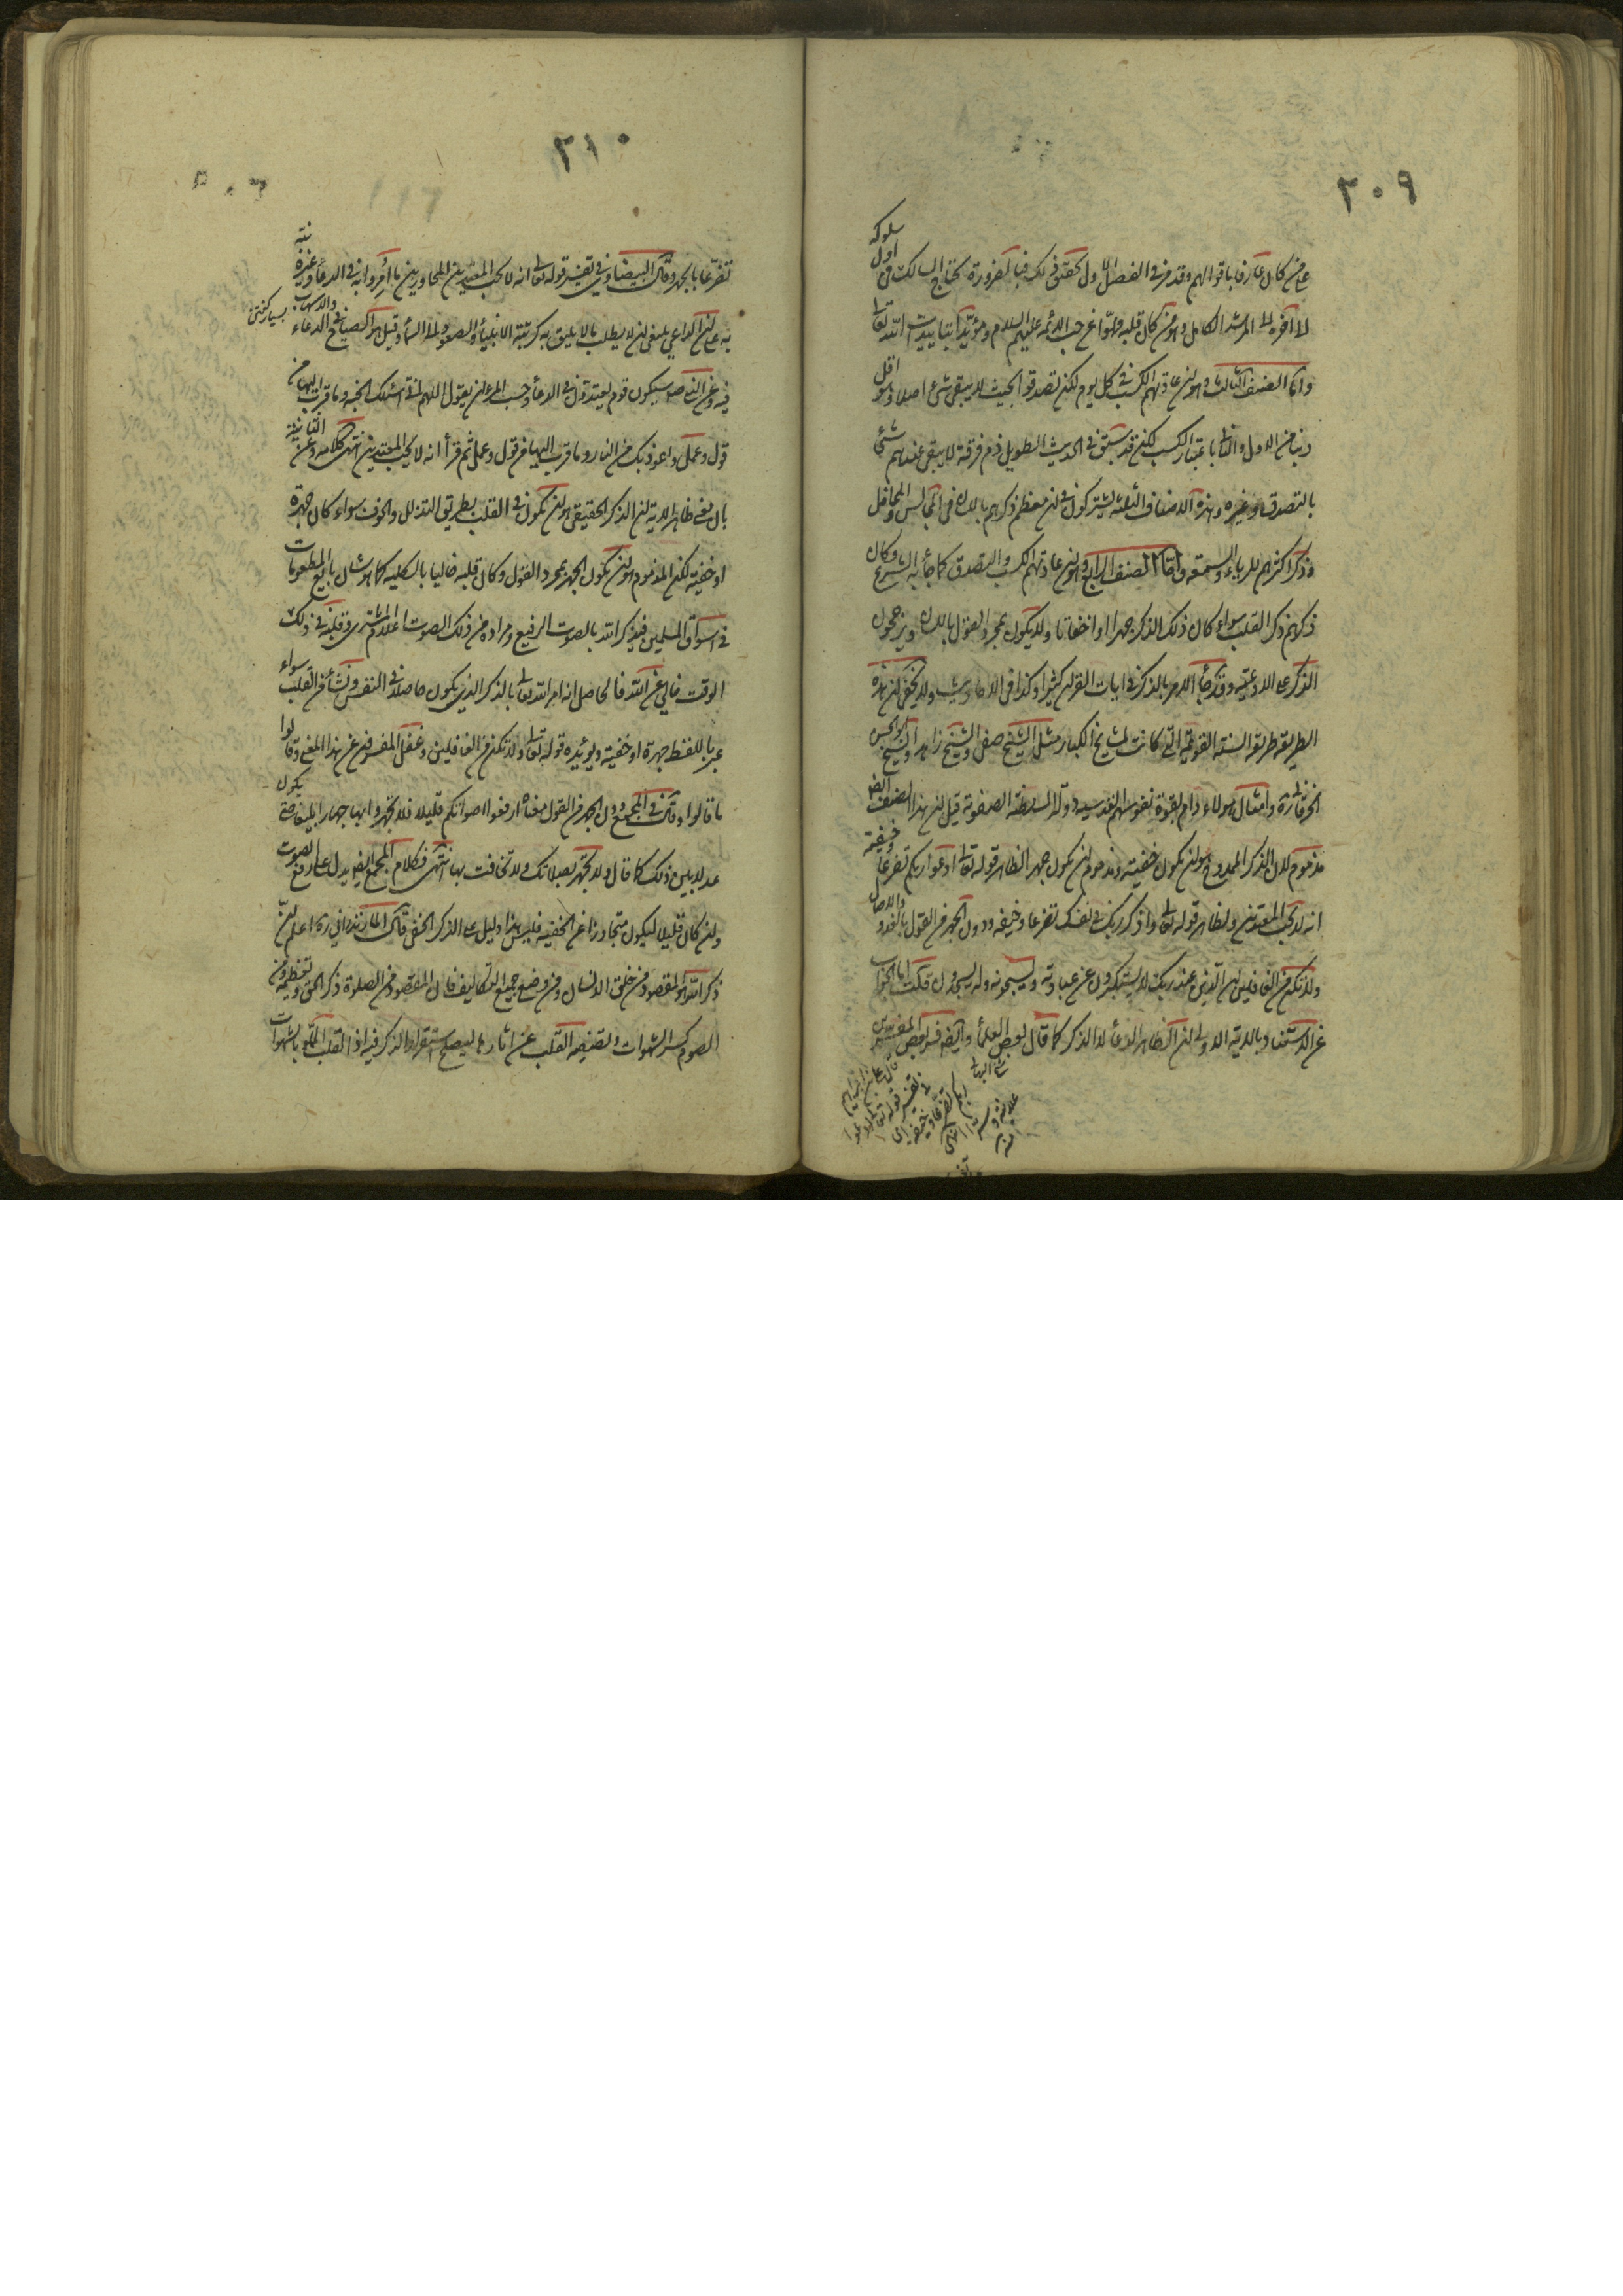 ٢٠٩
على من كان عارفا باقوالهم وقد مر في الفصل الاول تحقيق ذلك فبالضرورة يحتاج السالك في اول سلوكه
الى اخره الى المرشد الكامل وهو من كان قلبه مملوا من حب الائمه عليهم السلام ومؤيدا بتاييدات الله تعالى
واما الصنف الثالث وهو من عادتهم الكسب في كل يوم لكن تصدقوا بحيث لا يبقى شئ اصلا وهو اقل
ذنبا من الاول والثاني باعتبار الكسب لكن قد سبق في الحديث الطويل ذم فرقة لا يبقى عندهم شئ
بالتصدق وغيره وهذه الاصناف الثلثه يشتركون في ان معظم ذكرهم باللسان في المجالس والمحافل
وذكر اكثرهم للرياء والسمعة واما الصنف الرابع وهو من عادتهم الكسب والتصدق كما جاء به الشرع وكان
ذكرهم ذكر القلب سواء كان ذلك الذكر جهرا او اخفاتا ولا يكون بمجرد القول باللسان ويرجحون
الذكر على الادعية وقد جاء الامر بالذكر في ايات القران كثيرا وكذا في الاحاديث ولا يخفى ان هذه
الطريقة طريقة السنة القويمة التي كانت لمشايخ الكبار مثل الشيخ صفي والشيخ زاهد والشيخ ابو الحسن
الخرقاني وامثال هؤلاء دام بقوة نفوسهم القدسيه دولة السلطنة الصفوية قيل ان هذا الصنف ايضا
مذموم لان الذكر الممدوح هو ان يكون خفية ومذموم ان يكون جهرا لظاهر قوله تعالى ادعوا ربكم تضرعا وخيفة
انه لا يحب المعتدين ولظاهر قوله تعالى واذكر ربك في نفسك تضرعا وخيفه ودون الجهر من القول بالغدو والاصال
ولا تكن من الغافلين ان الذين عند ربك لا يستكبرون عن عبادته ويسبحونه وله يسجدون قلت اما الجواب
عن الاستشهاد بالاية الاولى ان الظاهر الدعاء لا الذكر كما قال بعض العلماء وايضا فسر بعض المفسرين
تفسير قوله تعالى ادعوا
ربكم تضرعا وخفية اي
علانية وسرا انتهى
٢١٠
تضرعا بالجهر وقال البيضاوي في تفسير قوله تعالى انه لا يحب المعتدين المجاوزين ما امروا به في الدعاء وغيره نبه
به على ان الداعي ينبغي ان لا يطلب ما لا يليق به كرتبة الانبياء والصعود الى السماء وقيل هو الصياح في الدعاء والاسهاب
بسيار كفتن
فيه وعن النبي ص سيكون قوم يعتدون في الدعاء وحسب المرء ان يقول اللهم اني اسئلك الجنة وما قرب اليها من
قول وعمل واعوذ بك من النار وما قرب اليها من قول وعمل ثم قرأ انه لا يحب المعتدين انتهى كلامه وعن الثانية
بان معنى ظاهر الاية ان الذكر الحقيقي هو ان يكون في القلب بطريق التذلل والخوف سواء كان جهرة
او خفية لكن المذموم هو ان يكون الجهر بمجرد القول وكان قلبه خاليا بالكليه كما هو شان بايع المطعومات
في اسواق المسلمين فيذكر الله بالصوت الرفيع ومراده من ذلك الصوت اعلام المشترى وقلبه في ذلك
الوقت خالي عن الله فالحاصل انه امر الله تعالى بالذكر الذي يكون حاصلا في النفس ونشأ من القلب سواء
عبر باللفظ جهرة او خفية ويؤيده قوله تعالى ولا تكن من الغافلين وغفل المفسرون عن هذا المعنى وقالوا
ما قالوا وقال في المجمع ودون الجهر من القول معناه ارفعوا اصواتكم قليلا فلا تجهروا بها جهارا بليغا حتى يكون
عدلا بين ذلك كما قال ولا تجهر بصلاتك ولا تخافت بها انتهى فكلام المجمع ايضا يدل على رفع الصوت
وان كان قليلا ليكون متجاوزا عن الخفية فليس هذا دليل على الذكر الخفي قال المازندراني ره اعلم ان
ذكر الله هو المقصود من خلق الانسان ومن وضع جميع التكاليف فان المقصود من الصلوة ذكر الحق وتعظيمه ومن
الصوم كسر الشهوات وتصفيه القلب عن اثارها ليصلح استقرار الذكر فيه اذ القلب المملو بالشهوات